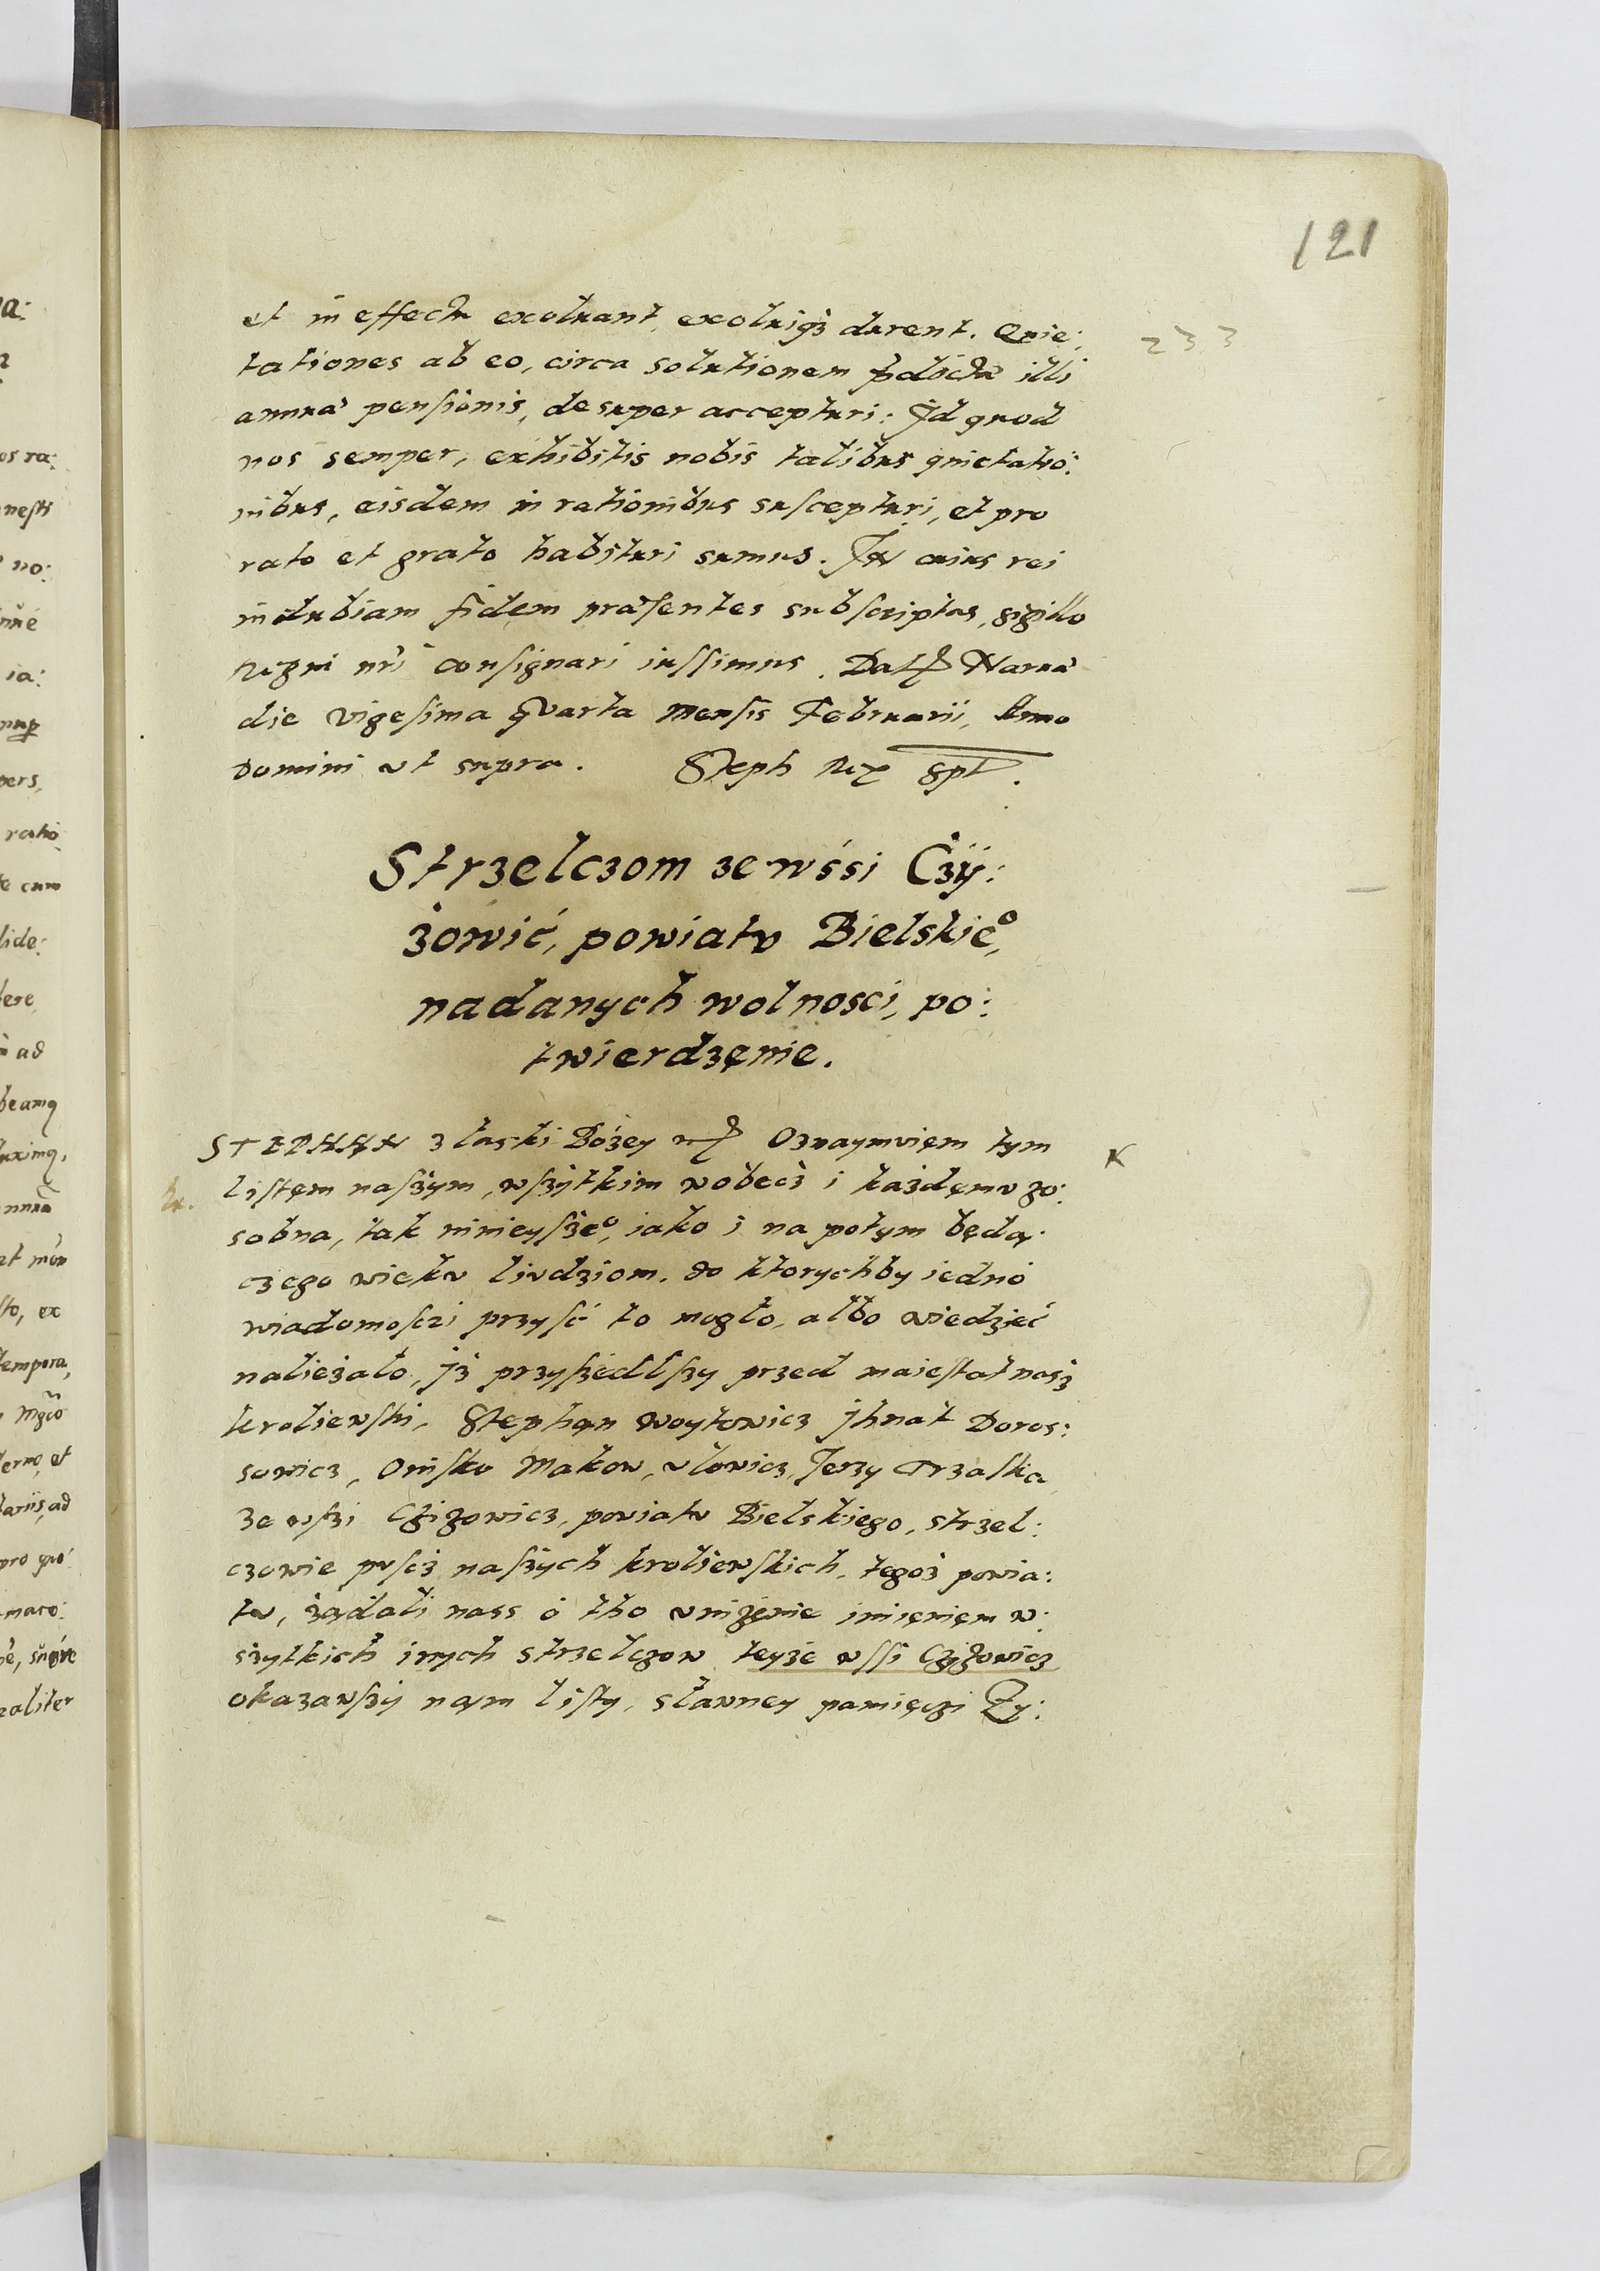 121
et in effectu exoluant, exoluiq3 curent. Quie:
233
tationes ab eo, circa solutionem pdictæ illi
annuæ pensionis, desuper accepturi: Id quod
nos semper, exhibitis nobis talibus quietatio:
nibus, eisdem in rationibus suscepturi, et pro
rato et grato habituri sumus. In cuius rei
indubiam fidem præsentes subscriptas, sigillo
Regni nri consignari iussimus. Dat Waruæ
die vigesima qvarta mensis Februarii, Anno
Domini ut supra. Steph Rex spt.
Strzelczom ze wśsi Czÿ:
żowić, powiatv Bielskie°,
nadanych wolnosci, po:
twierdzęnie.
STEPHAN z łaski Bożey Oznaymvięm tym
listęm naszym, wszytkim wobecz i każdęmv zo:
sobna, tak ninieysze°, iako i na potym będą:
czego wiekv livdziom, do ktorychby iedno
wiadomosczi przysć to mogło, albo wiedzieć
należało, iż przyszedlszy przed maiestat nasz
kroliewski, Stephan Woytowicz Jhnat Doros:
sowicz, Onisko Makow, vlowicz, Jerzy Trzaska
ze wszi Czizowicz, powiatv Bielskiego, strzel:
czowie pvscz naszych kroliewskich, tegoż powia:
tv, żądali nass o tho vniżęnie imięnięm w:
szytkich inych strzelczow teyże wssi Czyżowicz
okazawszy nąm listy, sławney pamięczi Zy: